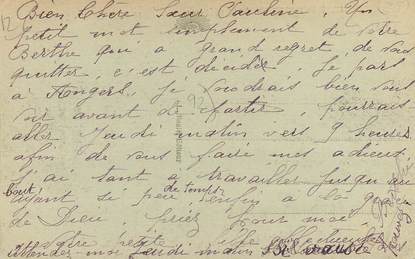 Bien Chère Sœur Pauline. Un
petit mot simplement de votre
Berthe qui a grand regret de vous
quitter, c'est décidé. Je pars
à Angers. Je voudrais bien vous
voir avant de partir, pourrais
aller Jeudi matin vers 9 heures
afin de vous faire mes adieux.
J'ai tant à travailler jusqu'au
bout, ayant se peu de temps enfin à la
de Dieu. priez pour moi
votre petite
Attendez-moi Jeudi matin S.V.P.
12
92